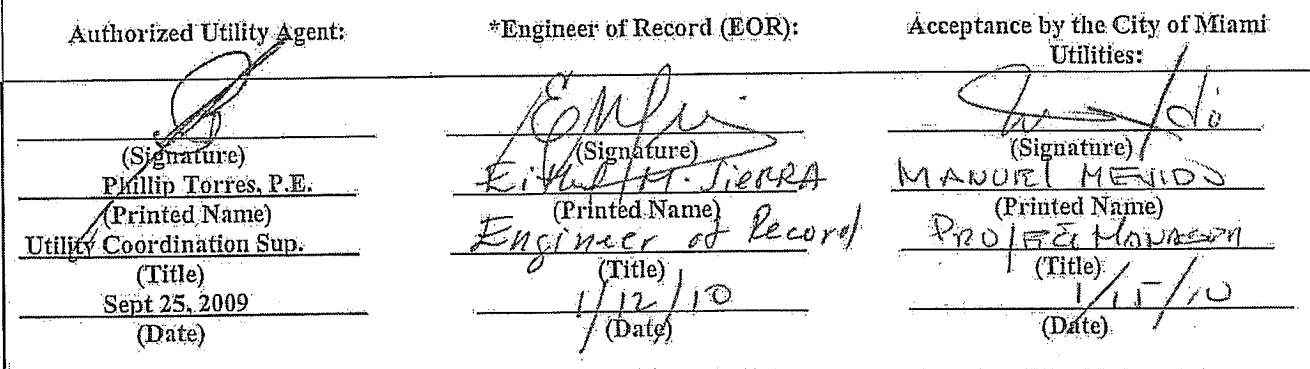 Authorized Utility Agent:
(Signature)
Phillip Torres, P.E.
(Printed Name)
Utility Coordination Sup.
(Title)
Sept 25, 2009
(Date)
*Engineer of Record (EOR):
(Signature)
M. SIERRA
(Printed Name)
Engineer of Record
(Title)
1/12/10
(Date)
Acceptance by the City of Miami
Utilities:
(Signature)
MANUEL
(Printed Name)
PROJECT MANAGER
(Title)
1/15/10
(Date)